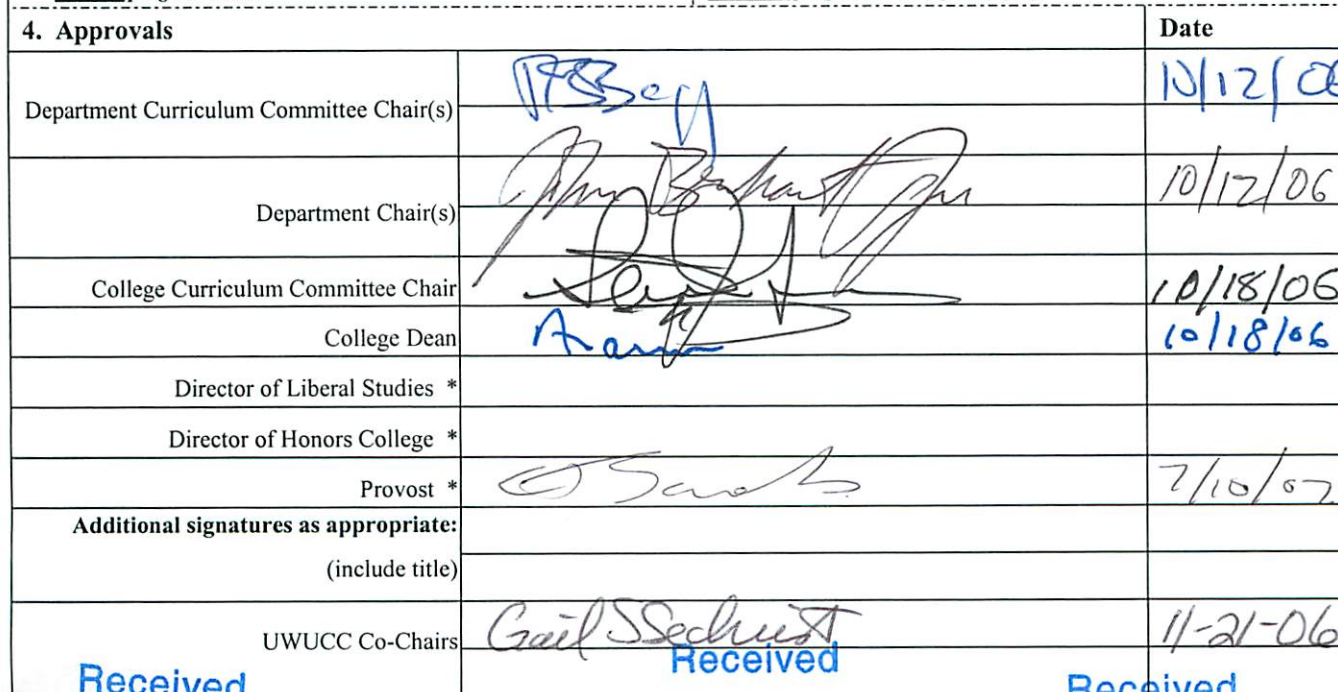 4. Approvals Date
Department Curriculum Committee Chair(s) 10/12/06
Department Chair(s) 10/12/06
College Curriculum Committee Chair 10/18/06
College Dean 10/18/06
Director of Liberal Studies *
Director of Honors College *
Provost * 7/10/07
Additional signatures as appropriate:
(include title)
UWUCC Co-Chairs Gail S Sechrist 11-21-06
Received Received Received